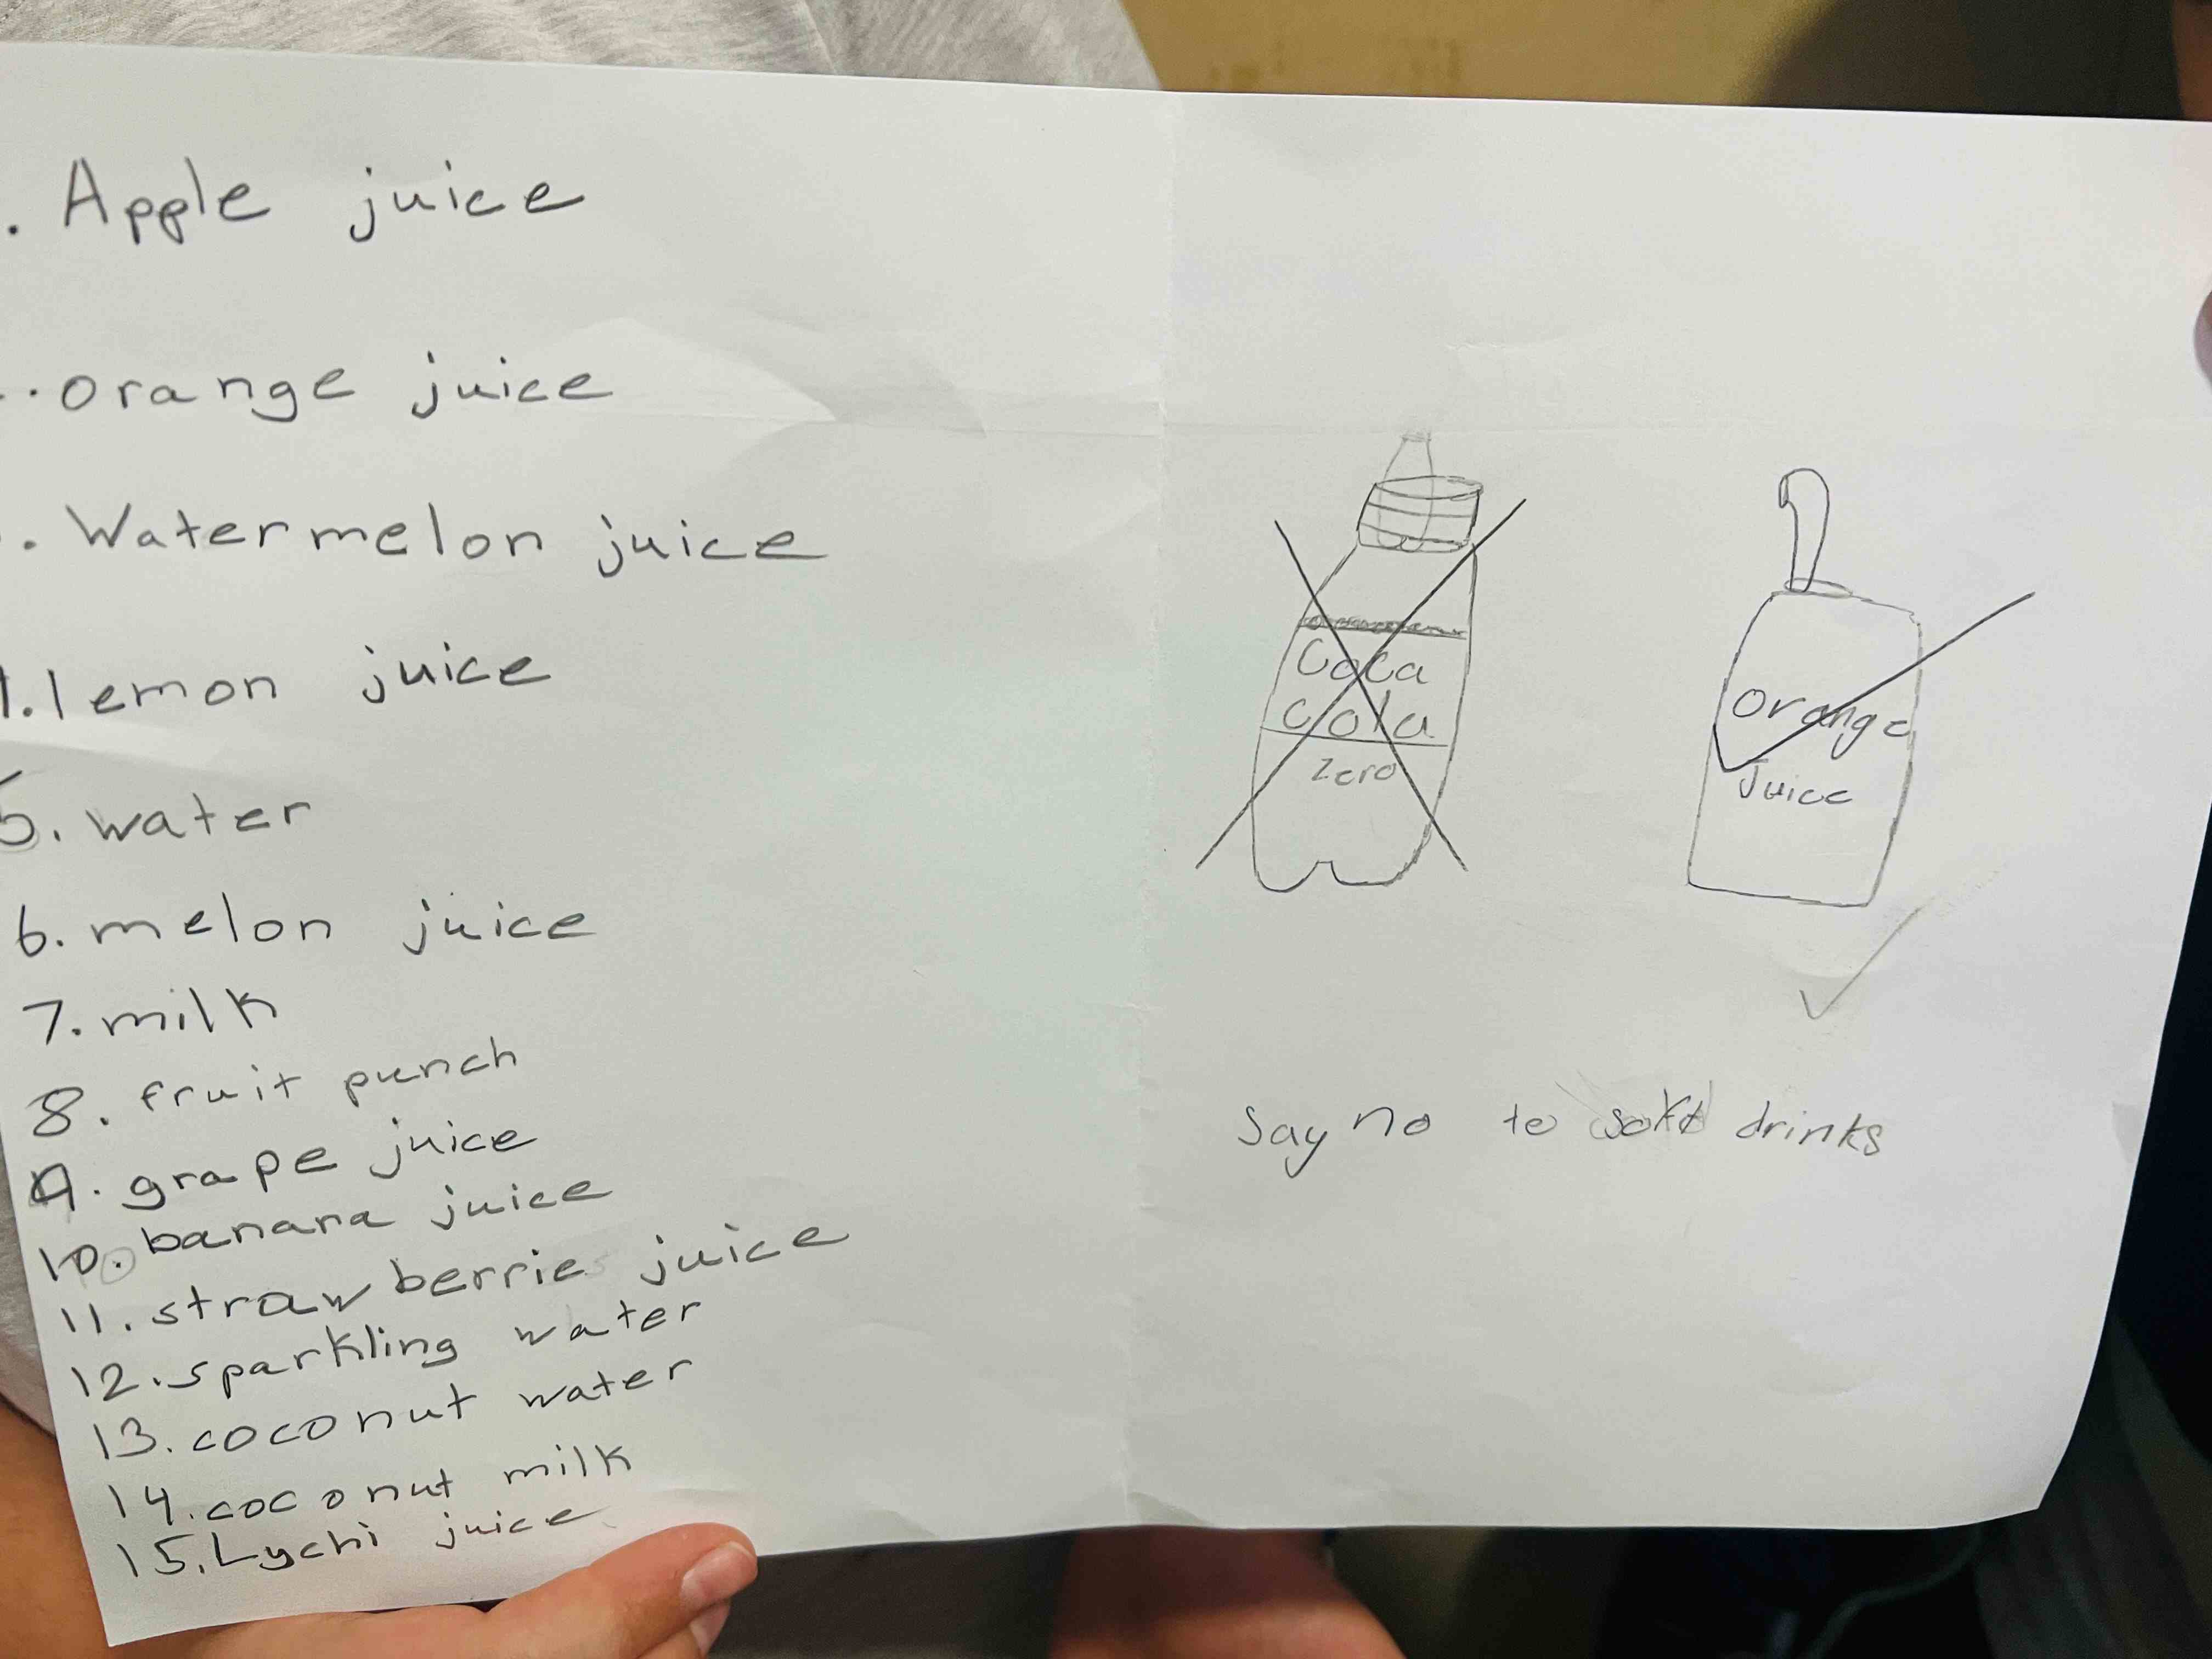 . Apple juice
. orange juice
. Watermelon juice
. lemon juice
5. water
6. melon juice
7. milk
8. fruit punch
9. grape juice
10. banana juice
11. strawberrie juice
12. sparkling water
13. coconut water
14. coconut milk
15. Lychi juice
Coca
Cola
Zero
Orange
Juice
Say no to soft drinks